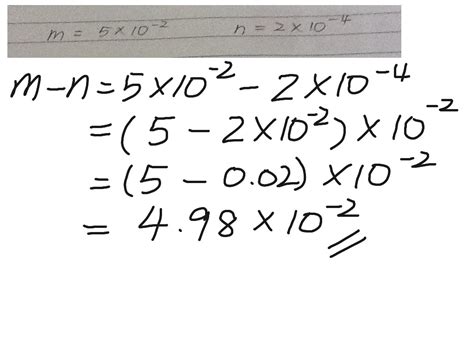 m = 5×10⁻² n = 2×10⁻⁴
m-n = 5×10⁻² - 2×10⁻⁴
= (5 - 2×10⁻²) × 10⁻²
= (5 - 0.02) × 10⁻²
= 4.98 × 10⁻²